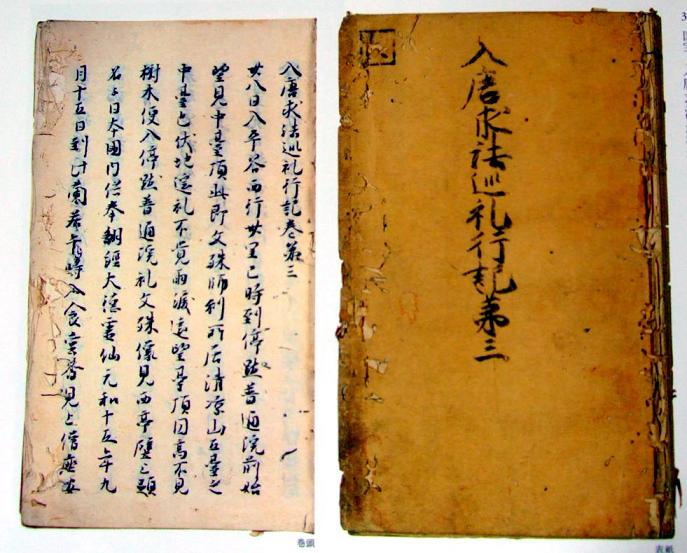 入唐求法巡礼行記第三
表紙
入唐求法巡礼行記巻第三
廿八日入平谷西行卅里巳時到停點普通院前始
望見中臺頂此即文殊師利所居清凉山五臺之
中臺也伏地遥礼不覚雨涙遥望臺頂圓高不見
樹木便入停點普通院礼文殊像見西亭壁上題
名云日本國内供奉翻經大德霊仙元和十五年九
月十五日到此蘭若午時入食堂斎見上僧座安
巻頭